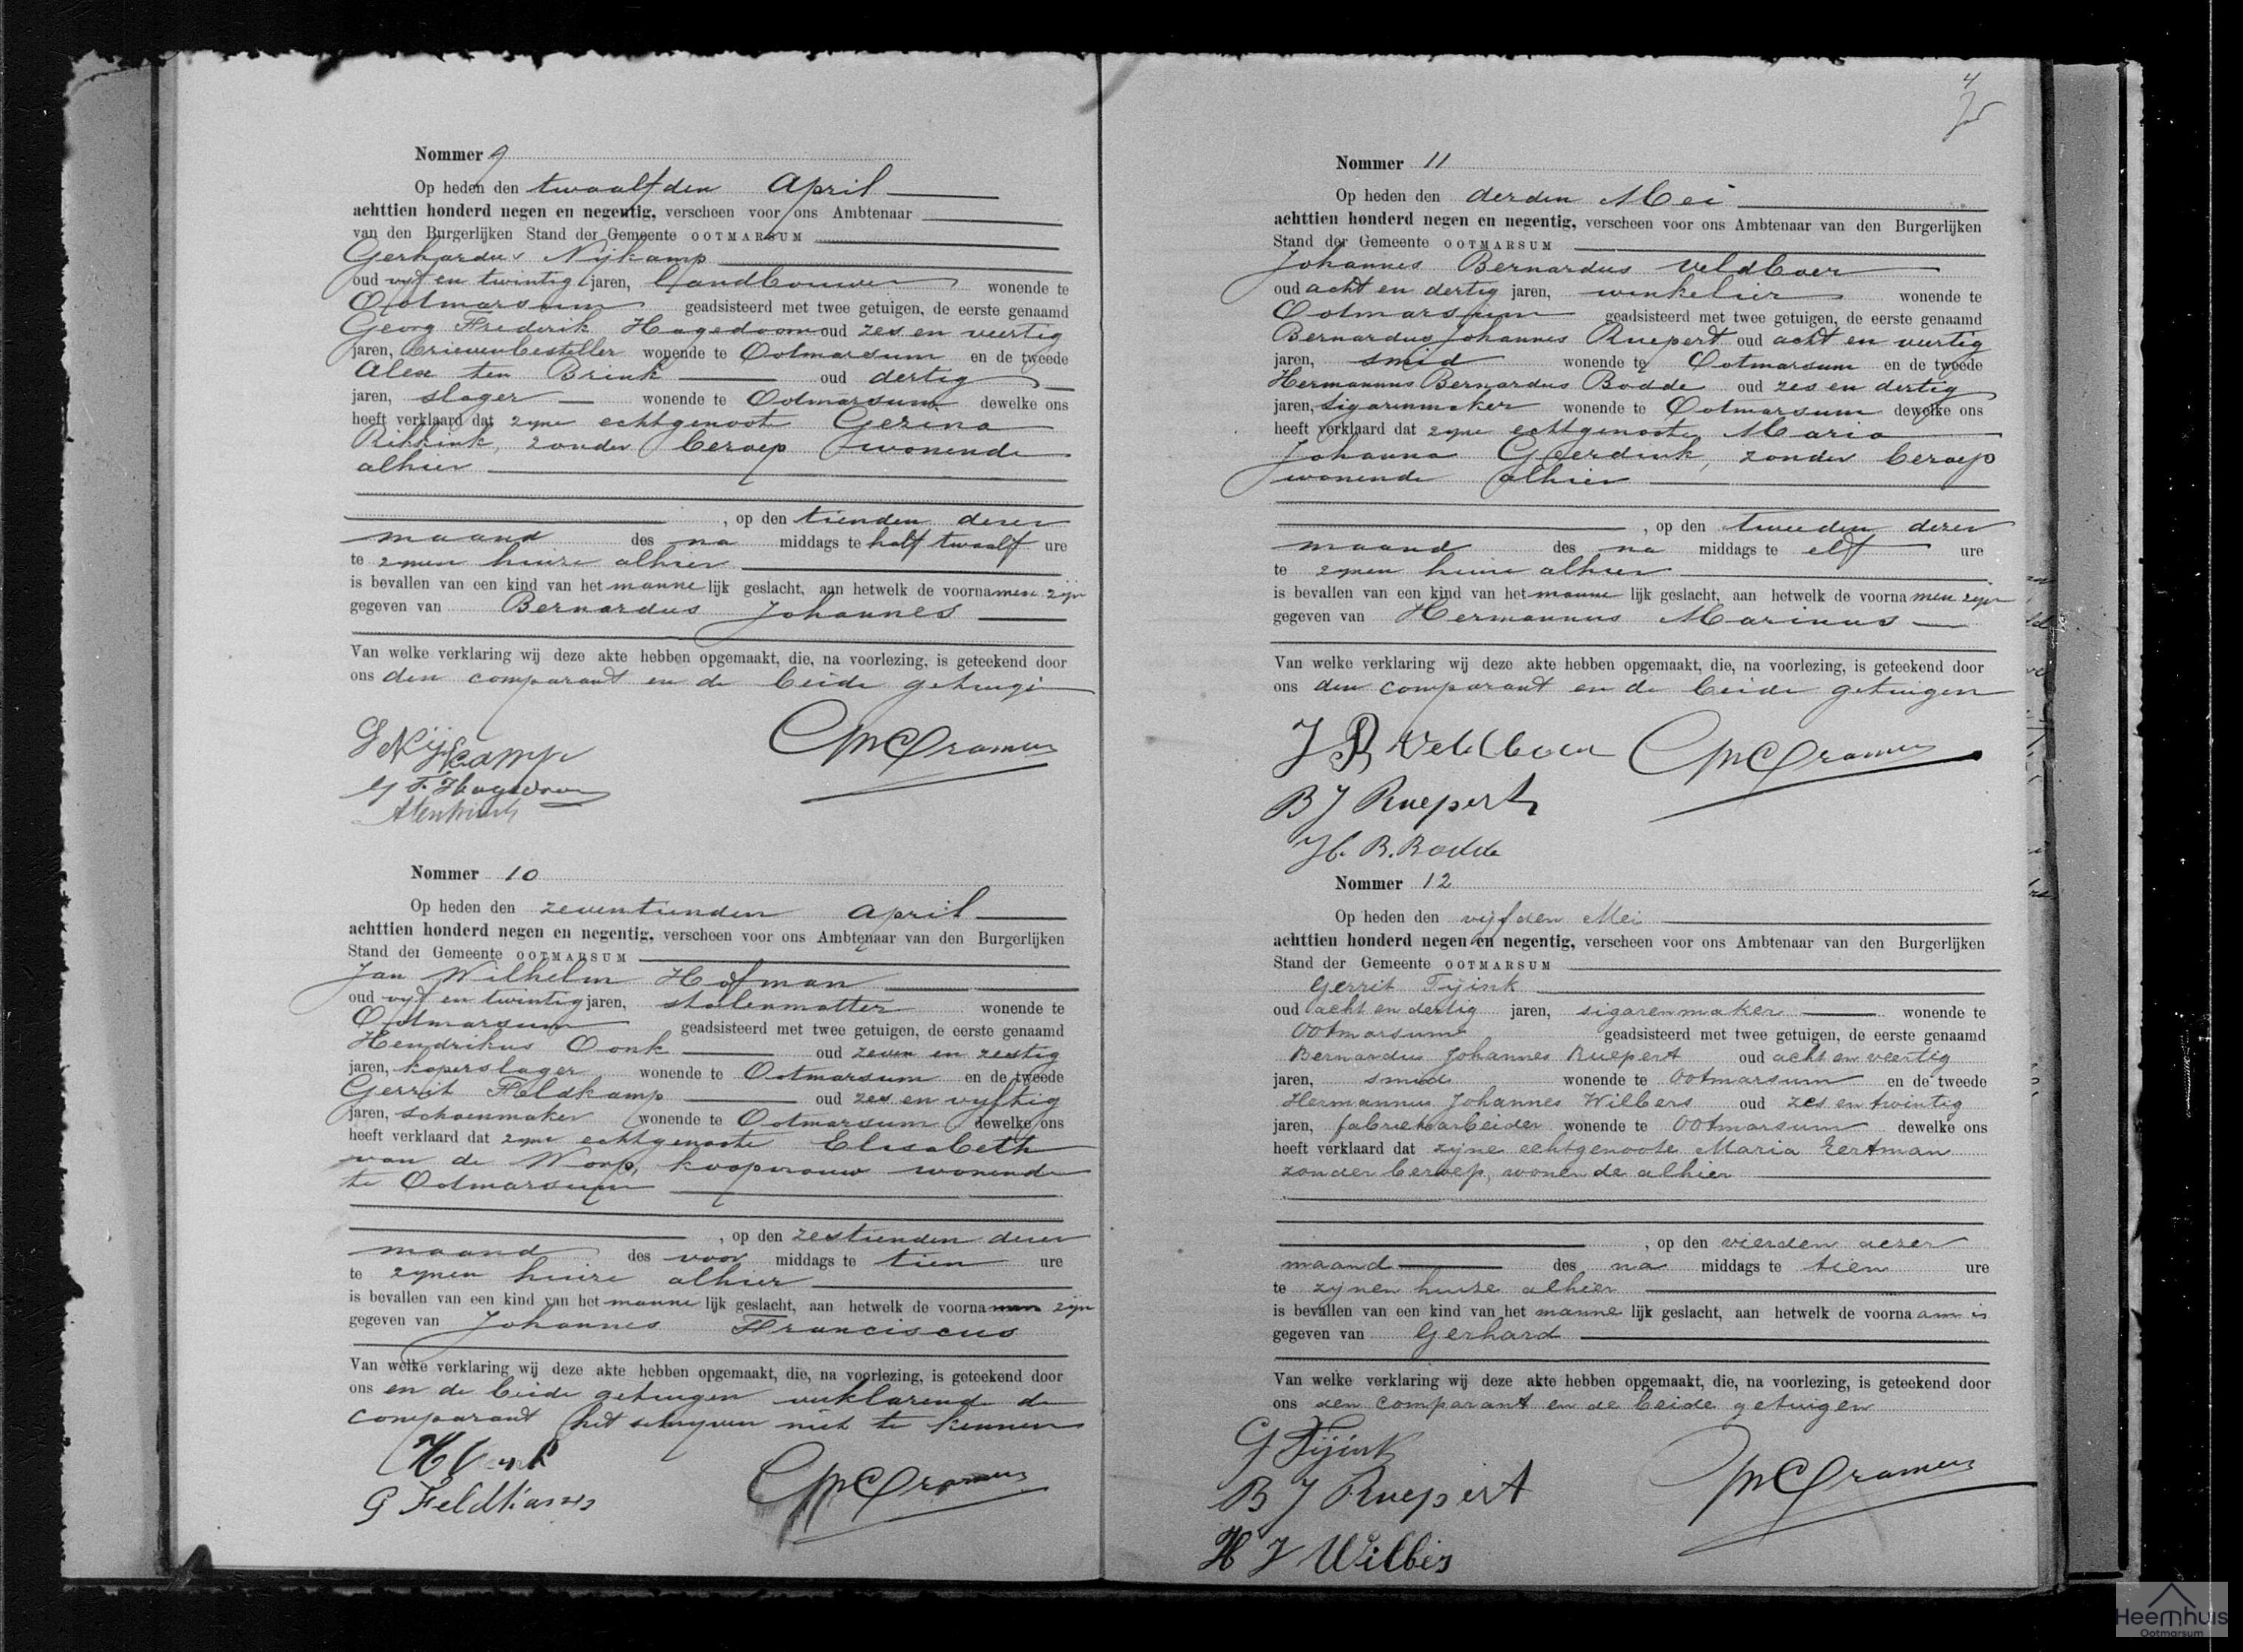 Nommer 9
Op heden den twaalfden April
achttien honderd negen en negentig, verscheen voor ons Ambtenaar
van den Burgerlijken Stand der Gemeente OOTMARSUM
Gerhardus Nijkamp
oud vijf en twintig jaren, landbouwer wonende te
Ootmarsum geadsisteerd met twee getuigen, de eerste genaamd
Georg Frederik Hagedoorn oud zes en veertig
jaren, brievenbesteller wonende te Ootmarsum en de tweede
Alex ten Brink oud dertig
jaren, slager wonende te Ootmarsum dewelke ons
heeft verklaard dat zyne echtgenoote Gezina
Rikkink, zonder beroep wonende
alhier
, op den tienden dezer
maand des na middags te half twaalf ure
te zynen huize alhier
is bevallen van een kind van het mannelijk geslacht, aan hetwelk de voornamen zijn
gegeven van Bernardus Johannes
Van welke verklaring wij deze akte hebben opgemaakt, die, na voorlezing, is geteekend door
ons den comparant en de beide getuigen
G Nijkamp
G F. Hagedoorn
Cramer
Nommer 10
Op heden den zeventienden April
achttien honderd negen en negentig, verscheen voor ons Ambtenaar van den Burgerlijken
Stand der Gemeente OOTMARSUM
Jan Wilhelm Hofman
oud vyf en twintig jaren, stoelenmatter wonende te
Ootmarsum geadsisteerd met twee getuigen, de eerste genaamd
Hendrikus Oonk oud zeven en zestig
jaren, koperslager wonende te Ootmarsum en de tweede
Gerrit Feldkamp oud zes en vyftig
jaren, schoenmaker wonende te Ootmarsum dewelke ons
heeft verklaard dat zyne echtgenoote Elisabeth
van de Worp, koopvrouw wonende
te Ootmarsum
, op den zestienden dezer
maand des voor middags te tien ure
te zynen huize alhier
is bevallen van een kind van het mannelijk geslacht, aan hetwelk de voornamen zijn
gegeven van Johannes Franciscus
Van welke verklaring wij deze akte hebben opgemaakt, die, na voorlezing, is geteekend door
ons en de beide getuigen verklarende de
comparant het schryven niet te kennen
H Oonk
G Feldkamp
Cramer
4
Nommer 11
Op heden den derden Mei
achttien honderd negen en negentig, verscheen voor ons Ambtenaar van den Burgerlijken
Stand der Gemeente OOTMARSUM
Johannes Bernardus Veldboer
oud acht en dertig jaren, winkelier wonende te
Ootmarsum geadsisteerd met twee getuigen, de eerste genaamd
Bernardus Johannes Ruepert oud acht en veertig
jaren, smid wonende te Ootmarsum en de tweede
Hermannus Bernardus Bodde oud zes en dertig
jaren, sigarenmaker wonende te Ootmarsum dewelke ons
heeft verklaard dat zyne echtgenoote Maria
Johanna Geerdink, zonder beroep
wonende alhier
, op den tweeden dezer
maand des na middags te elf ure
te zynen huize alhier
is bevallen van een kind van het mannelijk geslacht, aan hetwelk de voornamen zijn
gegeven van Hermannus Marinus
Van welke verklaring wij deze akte hebben opgemaakt, die, na voorlezing, is geteekend door
ons den comparant en de beide getuigen
J B Veldboer
Cramer
B J Ruepert
H. B. Bodde
Nommer 12
Op heden den vijfden Mei
achttien honderd negen en negentig, verscheen voor ons Ambtenaar van den Burgerlijken
Stand der Gemeente OOTMARSUM
Gerrit Tijink
oud acht en dertig jaren, sigarenmaker wonende te
Ootmarsum geadsisteerd met twee getuigen, de eerste genaamd
Bernardus Johannes Ruepert oud acht en veertig
jaren, smid wonende te Ootmarsum en de tweede
Hermannus Johannes Wilbers oud zes en twintig
jaren, fabriekarbeider wonende te Ootmarsum dewelke ons
heeft verklaard dat zijne echtgenoote Maria Eertman
zonder beroep, wonende alhier
, op den vierden dezer
maand des na middags te tien ure
te zijnen huize alhier
is bevallen van een kind van het mannelijk geslacht, aan hetwelk de voornaam is
gegeven van Gerhard
Van welke verklaring wij deze akte hebben opgemaakt, die, na voorlezing, is geteekend door
ons den comparant en de beide getuigen
G Tijink
B J Ruepert
Cramer
H J Wilbers
Heemhuis
Ootmarsum